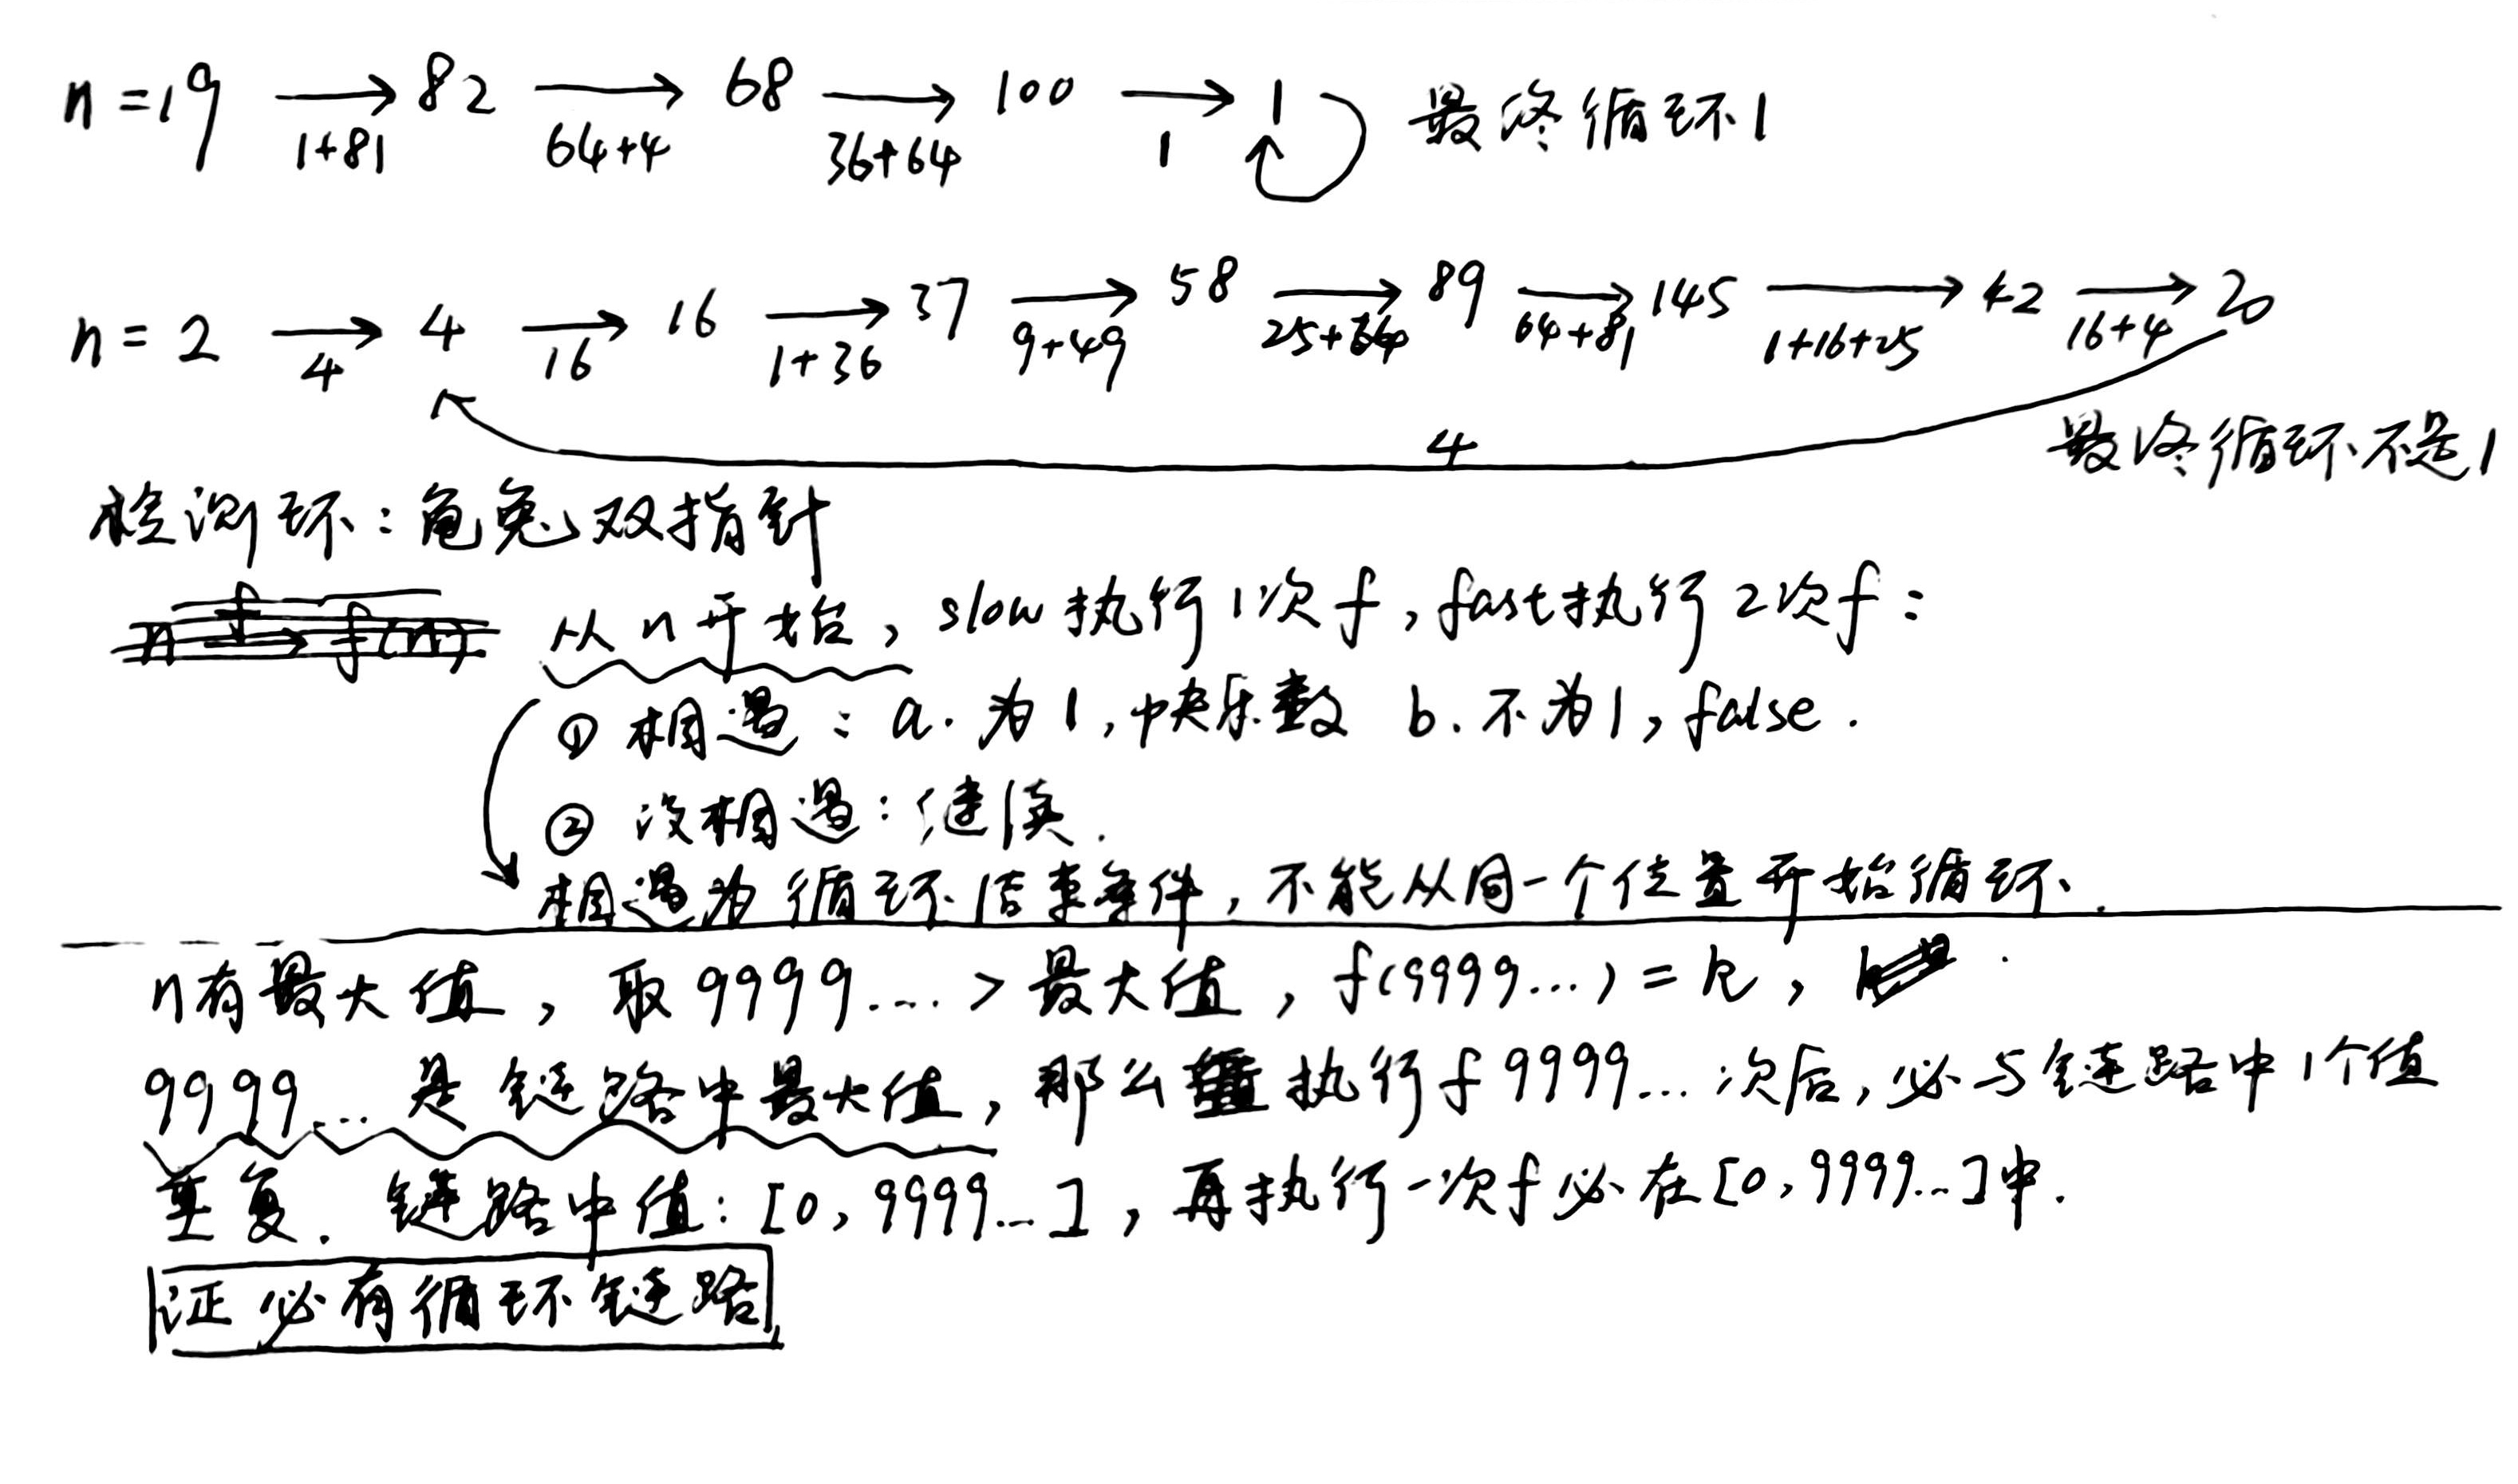 n=19 → 82 → 68 → 100 → 1 最终循环1
1+81 64+4 36+64 1
n=2 → 4 → 16 → 37 → 58 → 89 → 145 → 42 → 20
4 16 1+36 9+49 25+64 64+81 1+16+25 16+4
4 最终循环不是1
检测环:龟兔双指针
从n开始,slow执行1次f,fast执行2次f:
① 相遇:a.为1,快乐数 b.不为1,false.
② 没相遇:继续.
相遇为循环结束条件,不能从同一个位置开始循环.
n有最大值,取9999...>最大值,f(9999...)=k,
9999...是链路中最大值,那么 执行f 9999...次后,必与链路中1个值
重复.链路中值:[0,9999...],再执行一次f必在[0,9999...]中.
证必有循环链路